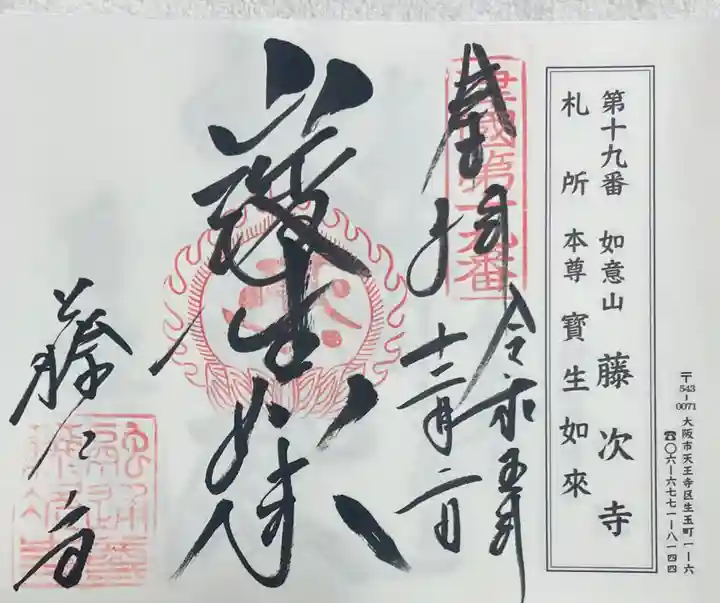 〒543-0071 大阪市天王寺区生玉町一ー六
☎〇六ー六七七一ー八一四四
第十九番 如意山 藤次寺
札所本尊 寶生如來
令和五年
十二月二日
國第十九番
生如来
藤次寺